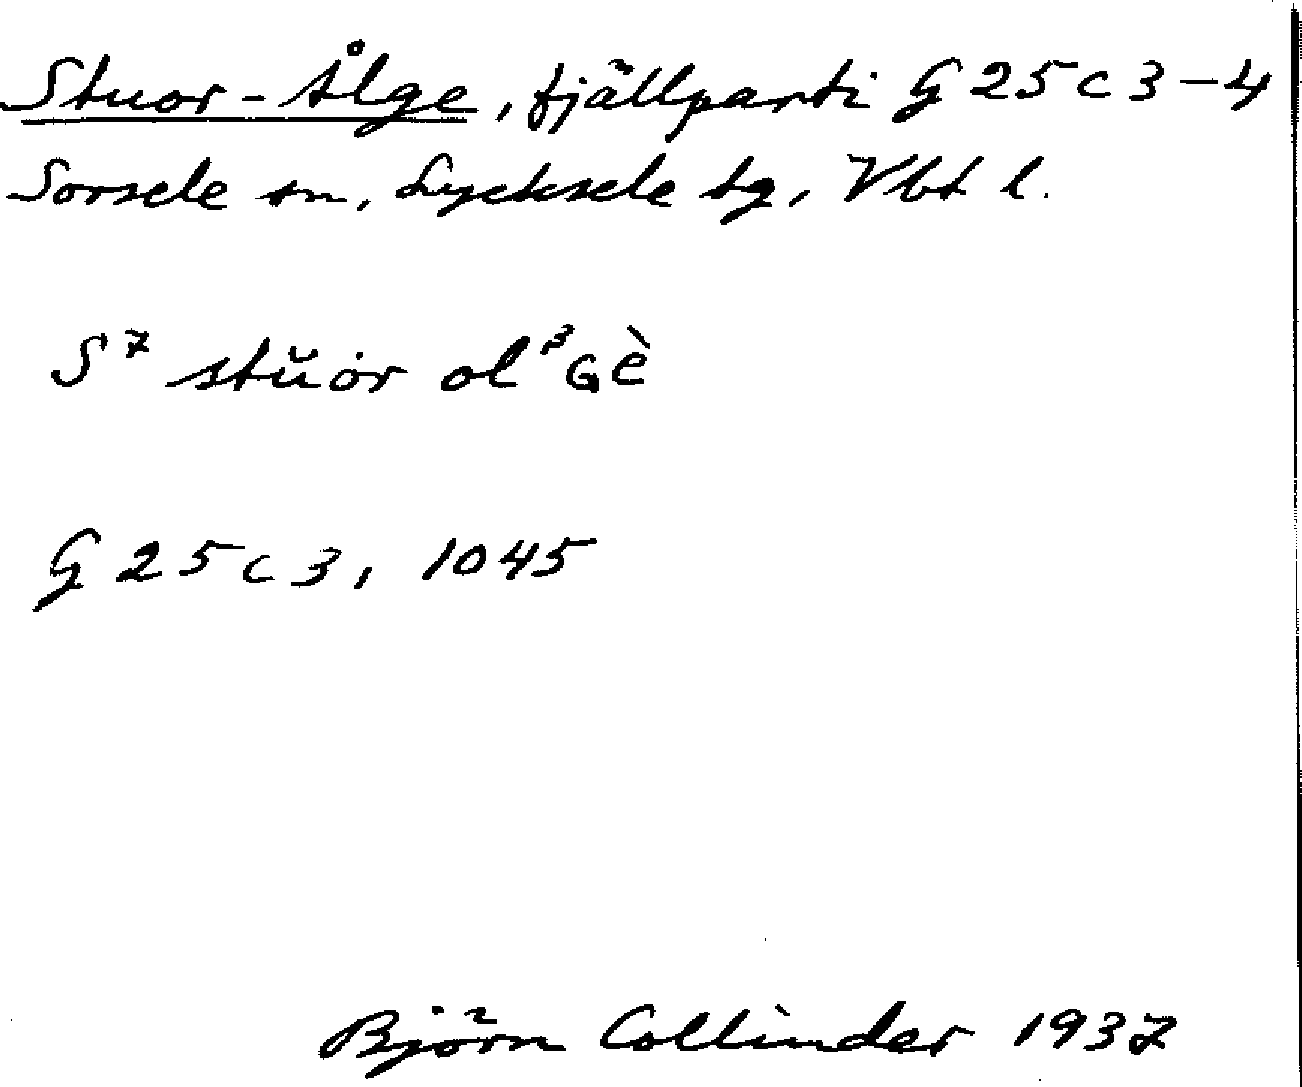 Stuor-Ålge, fjällparti G 25 c 3-4
Sorsele sn, Lycksele tg, Vbt l.
S⁷ stŭȯr ol³Gè
G 25 c 3, 1045
Björn Collinder 1937